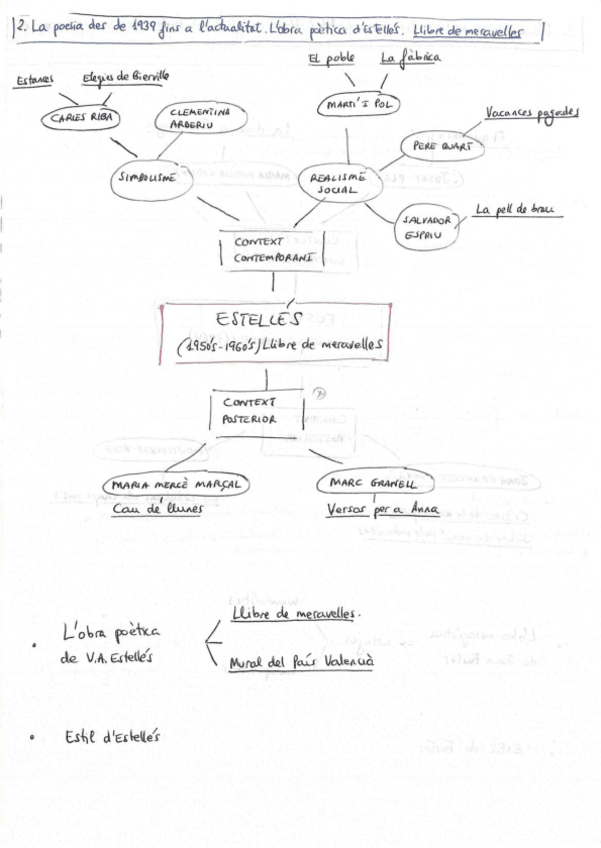 2. La poesia des de 1939 fins a l'actualitat. L'obra poètica d'Estellés. Llibre de meravelles
El poble
La fàbrica
Estances
Elegies de Bierville
MARTÍ I POL
CARLES RIBA
CLEMENTINA
ARDERIU
Vacances pagades
PERE QUART
SIMBOLISME
REALISME
SOCIAL
La pell de brau
SALVADOR
ESPRIU
CONTEXT
CONTEMPORANI
ESTELLÉS
(1950's-1960's) Llibre de meravelles
CONTEXT
POSTERIOR
MARIA MERCÈ MARÇAL
MARC GRANELL
Cau de llunes
Versos per a Anna
L'obra poètica
de V.A. Estellés
Llibre de meravelles.
Mural del País Valencià
Estil d'Estellés